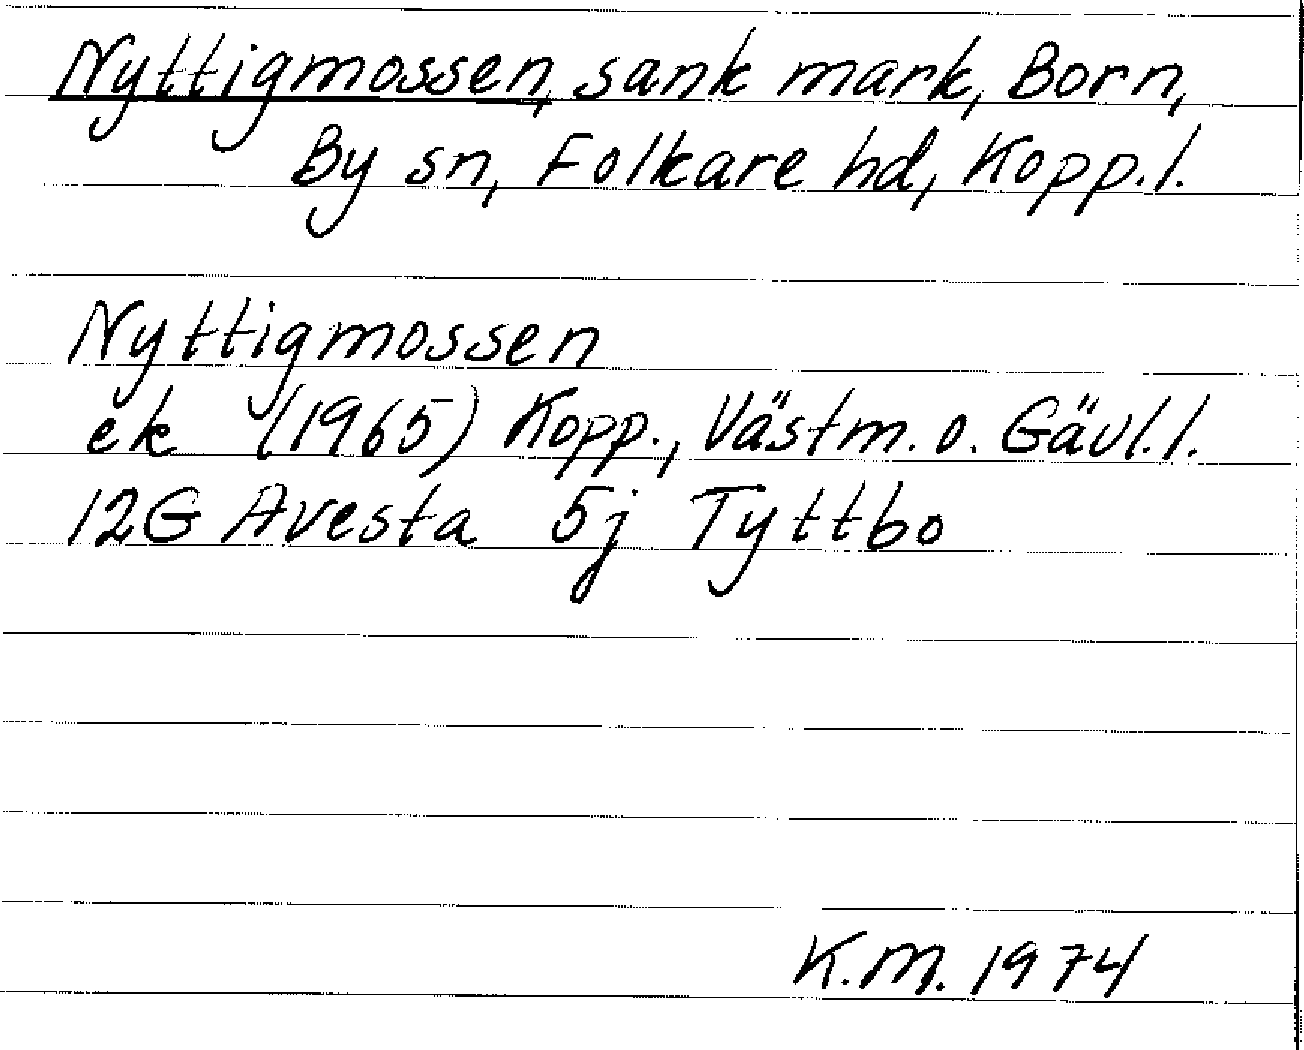 Nyttigmossen, sank mark, Born,
By sn, Folkare hd, Kopp.l.
Nyttigmossen
ek (1965) Kopp., Västm. o. Gävl.l.
12G Avesta 5j Tyttbo
K.M. 1974